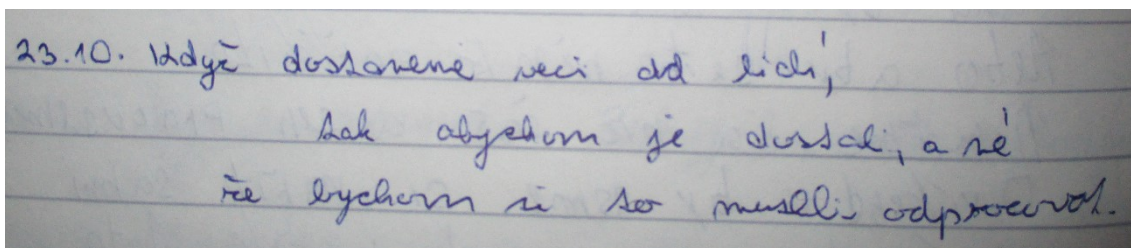 23.10. Když dostaneme veci od lidí,
tak abychom je dostali, a né
že bychom si to museli odpracovat.